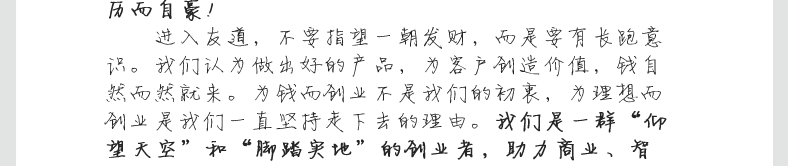 历而自豪！
进入友道，不要指望一朝发财，而是要有长跑意
识。我们认为做出好的产品，为客户创造价值，钱自
然而然就来。为钱而创业不是我们的初衷，为理想而
创业是我们一直坚持走下去的理由。我们是一群“仰
望天空”和“脚踏实地”的创业者，助力商业、智